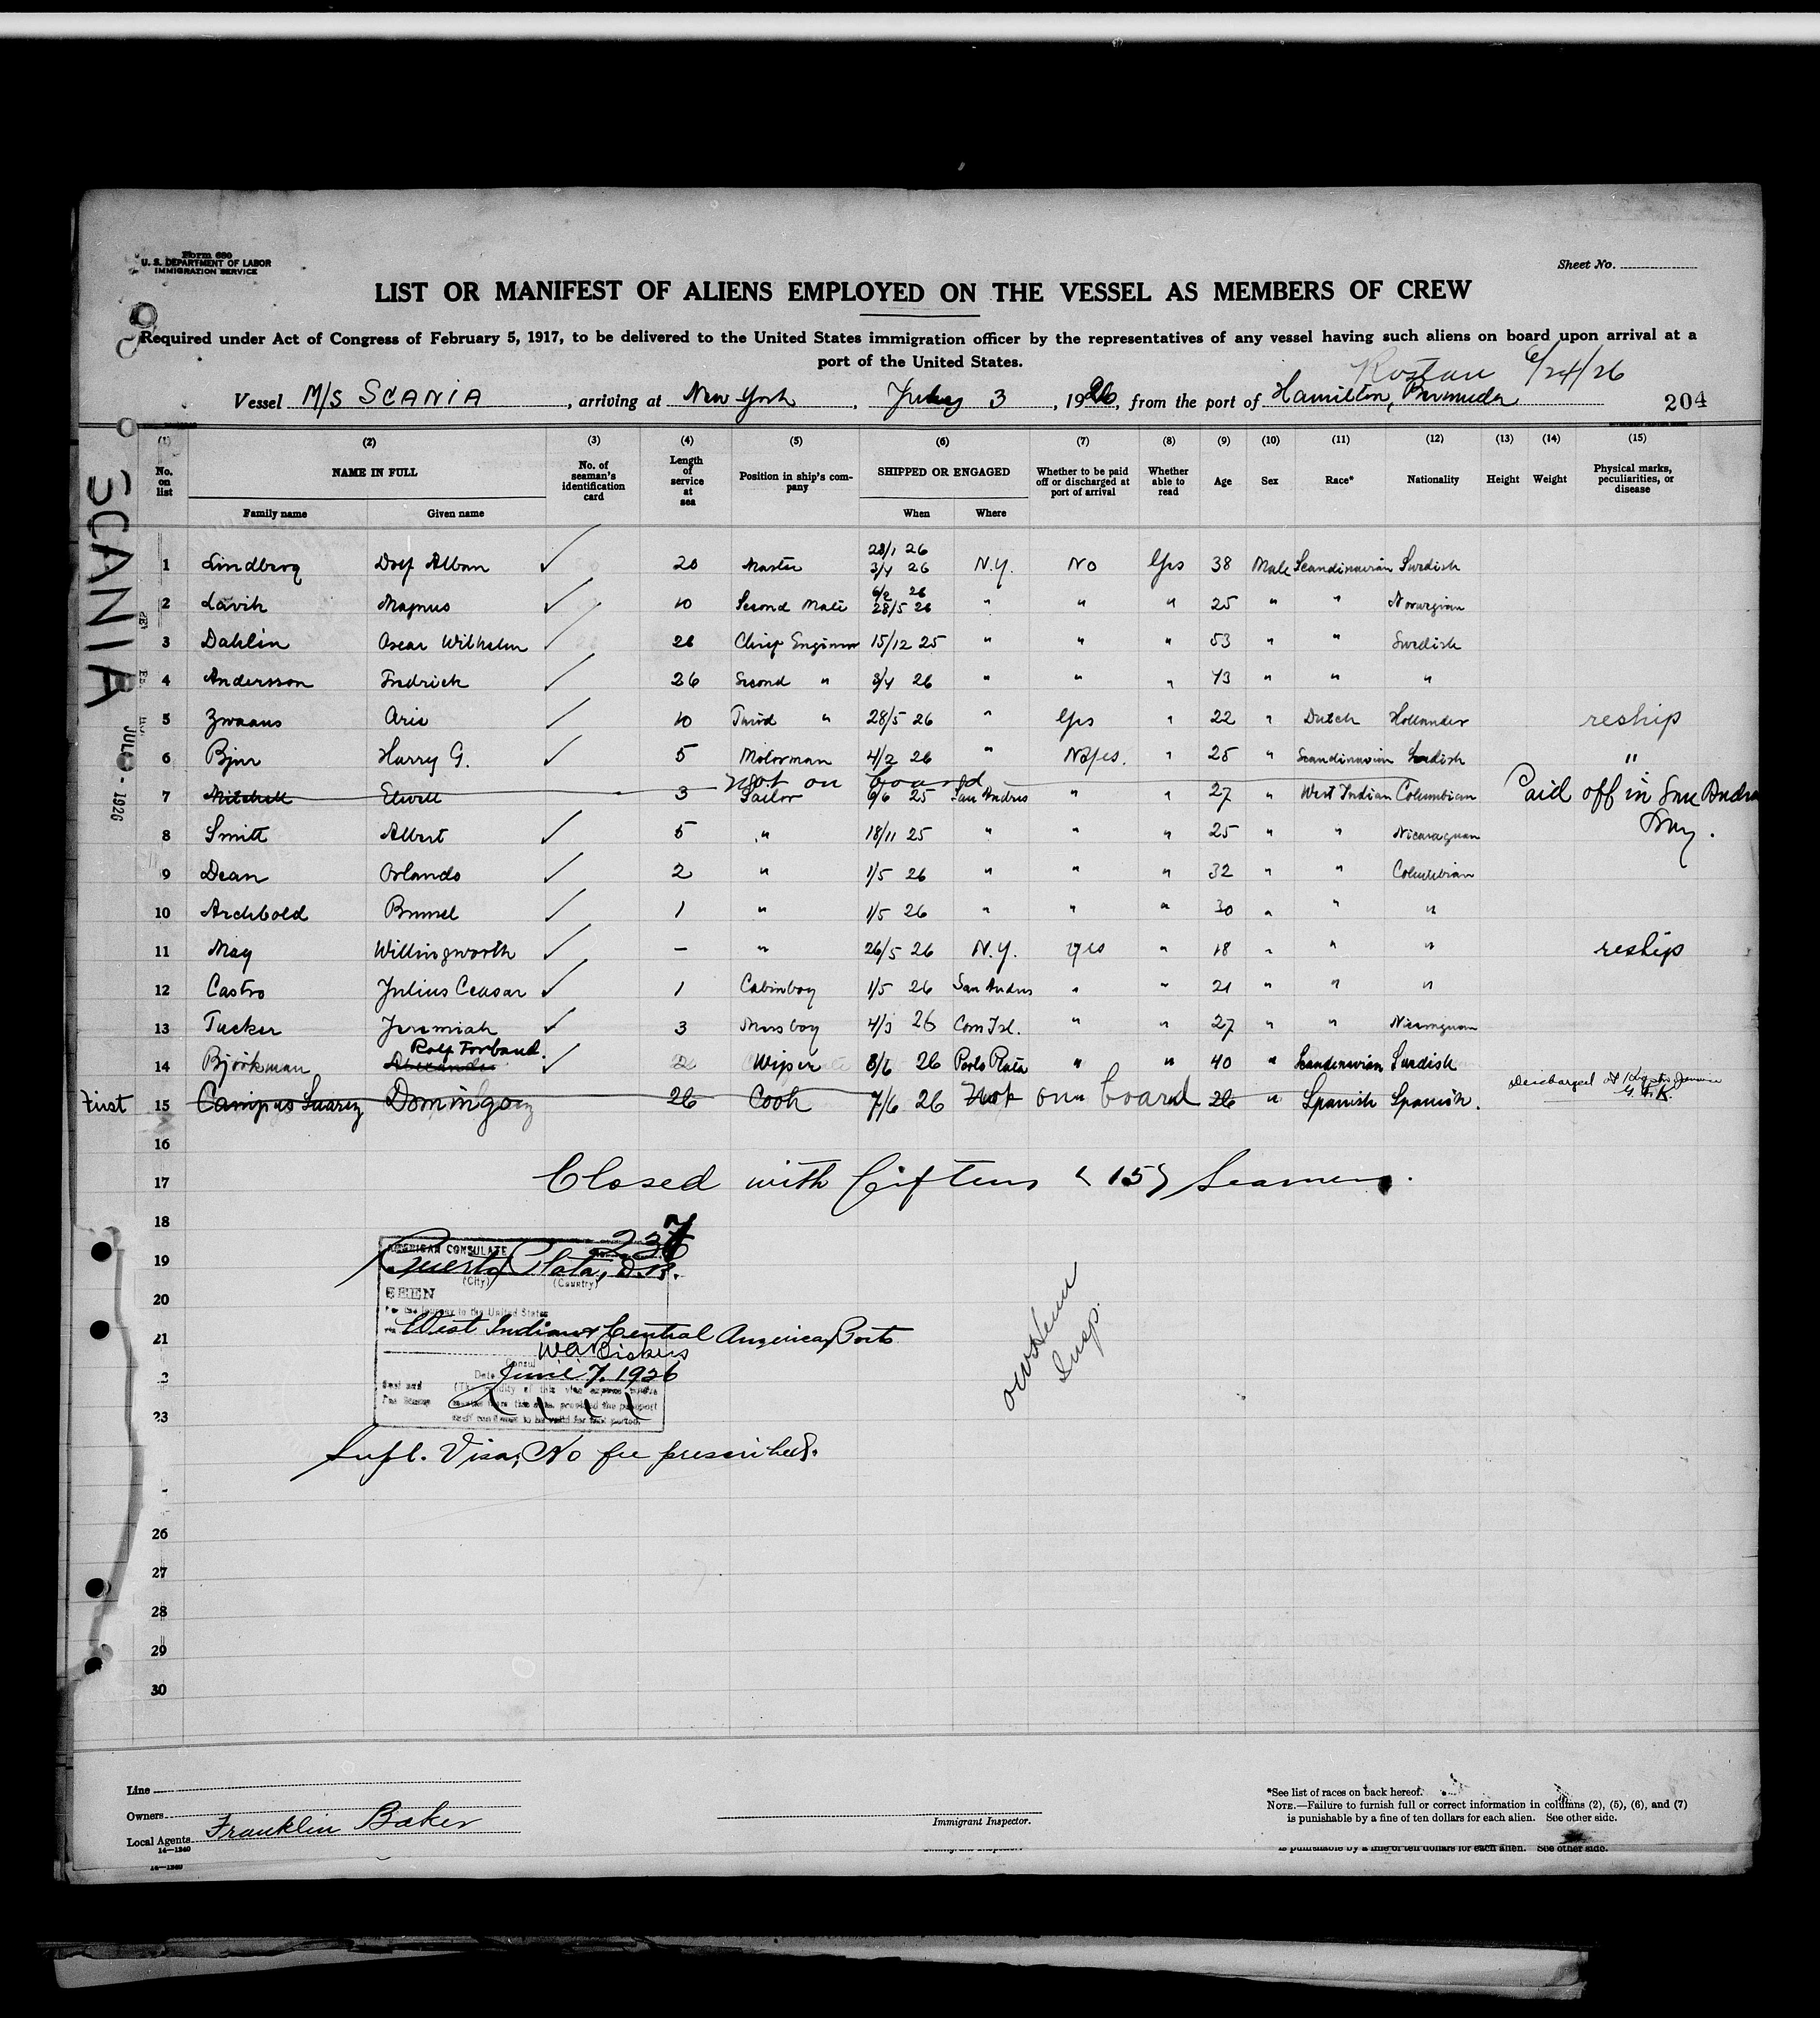 Form 680
U. S. DEPARTMENT OF LABOR
IMMIGRATION SERVICE
Sheet No.
LIST OR MANIFEST OF ALIENS EMPLOYED ON THE VESSEL AS MEMBERS OF CREW
Required under Act of Congress of February 5, 1917, to be delivered to the United States immigration officer by the representatives of any vessel having such aliens on board upon arrival at a
port of the United States.
6/24/26
Vessel M/S SCANIA, arriving at New York, July 3, 1926, from the port of Hamilton, Bermuda
204
SCANIA
(1) (2) (3) (4) (5) (6) (7) (8) (9) (10) (11) (12) (13) (14) (15)
No. on list NAME IN FULL No. of seaman's identification card Length of service at sea Position in ship's company SHIPPED OR ENGAGED Whether to be paid off or discharged at port of arrival Whether able to read Age Sex Race* Nationality Height Weight Physical marks, peculiarities, or disease
Family name Given name When Where
28/1 26
1 Lindberg Alban ✓ 20 Master 3/4 26 N.Y. No Yes 38 Male Scandinavian Swedish
6/2 26
2 Lavik Magnus ✓ 10 Second Mate 28/5 26 " " " 25 " " Norwegian
3 Dahlin Oscar Wilhelm ✓ 28 Chief Engineer 15/12 25 " " " 53 " " Swedish
4 Andersson Fredrick ✓ 26 Second " 3/4 26 " " " 43 " " "
5 Zwaans Arie ✓ 10 Third " 28/5 26 " Yes " 22 " Dutch Hollander reship
6 Bjur Harry G. ✓ 5 Motorman 4/2 26 " No yes. " 25 " Scandinavian Swedish "
not on board
7 Mitchell Elwell 3 Sailor 6/6 25 San Andres " " 27 " West Indian Columbian Paid off in San Andres
8 Smith Albert ✓ 5 " 18/11 25 " " " 25 " " Nicaraguan
9 Dean Orlando ✓ 2 " 1/5 26 " " " 32 " " Columbian
10 Archbold Brunel ✓ 1 " 1/5 26 " " " 30 " " "
11 May Willingworth ✓ — " 26/5 26 N.Y. yes " 18 " " " reship
12 Castro Julius Ceasar ✓ 1 Cabinboy 1/5 26 San Andres " " 21 " " "
13 Tucker Jeremiah ✓ 3 Messboy 4/3 26 Corn Isl. " " 27 " " Nicaraguan
Rolf Torband.
14 Björkman Alexander ✓ 2 Wiper 8/6 26 Porto Plata " " 40 " Scandinavian Swedish
First 15 Campos Suarez Domingo 26 Cook 7/6 26 Not on board 26 " Spanish Spanish. Discharged at
16
17 Closed with fifteen (15) Seamen.
18
237
AMERICAN CONSULATE
19 Puerto Plata, D.R.
(City) (Country)
20 SEEN
For the journey to the United States
21 West Indian & Central American Ports
W.A. Bickers
Consul
Date June 7, 1926
23
Supl. Visa, No fee prescribed.
Insp.
26
27
28
29
30
JUL - 1926
Line
Owners
Local Agents Franklin Baker
14—1240
Immigrant Inspector.
*See list of races on back hereof.
NOTE.—Failure to furnish full or correct information in columns (2), (5), (6), and (7)
is punishable by a fine of ten dollars for each alien. See other side.
is punishable by a fine of ten dollars for each alien. See other side.
14—1240